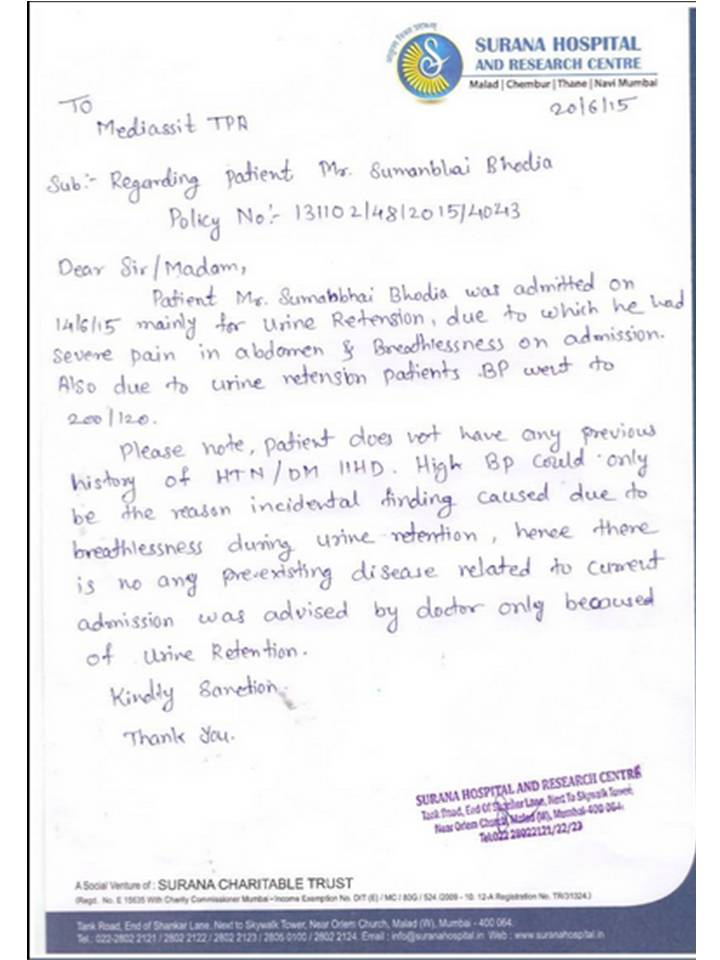 SURANA HOSPITAL
AND RESEARCH CENTRE
Malad | Chembur | Thane | Navi Mumbai
20/6/15
To
Mediassit TPA
Sub:- Regarding Patient Mr. Sumanbhai Bhodia
Policy No:- 131102/48/2015/4043
Dear Sir/Madam,
Patient Mr. Sumabbhai Bhodia was admitted on
14/6/15 mainly for Urine Retension, due to which he had
severe pain in abdomen & Breathlessness on admission.
Also due to urine retension patients BP went to
200/120.
Please note, patient does not have any previous
history of HTN/DM IIHD. High BP could only
be the reason incidental finding caused due to
breathlessness during urine retention, hence there
is no any pre-existing disease related to current
admission was advised by doctor only becaused
of Urine Retention.
Kindly Sanction.
Thank You.
SURANA HOSPITAL AND RESEARCH CENTRE
Tank Road, End Of Shankar Lane, Next To Skywalk Tower,
Near Orlem Church, Malad (W), Mumbai-400 064.
Tel:022 28022121/22/23
A Social Venture of : SURANA CHARITABLE TRUST
(Regd. No. E 15635 With Charity Commissioner Mumbai - Income Exemption No. DIT (E) / MC / 80G / 524 /2009 - 10. 12-A Registration No. TR/31324.)
Tank Road, End of Shankar Lane, Next to Skywalk Tower, Near Orlem Church, Malad (W), Mumbai - 400 064.
Tel.: 022-2802 2121 / 2802 2122 / 2802 2123 / 2805 0100 / 2802 2124. Email : info@suranahospital.in Web : www.suranahospital.in